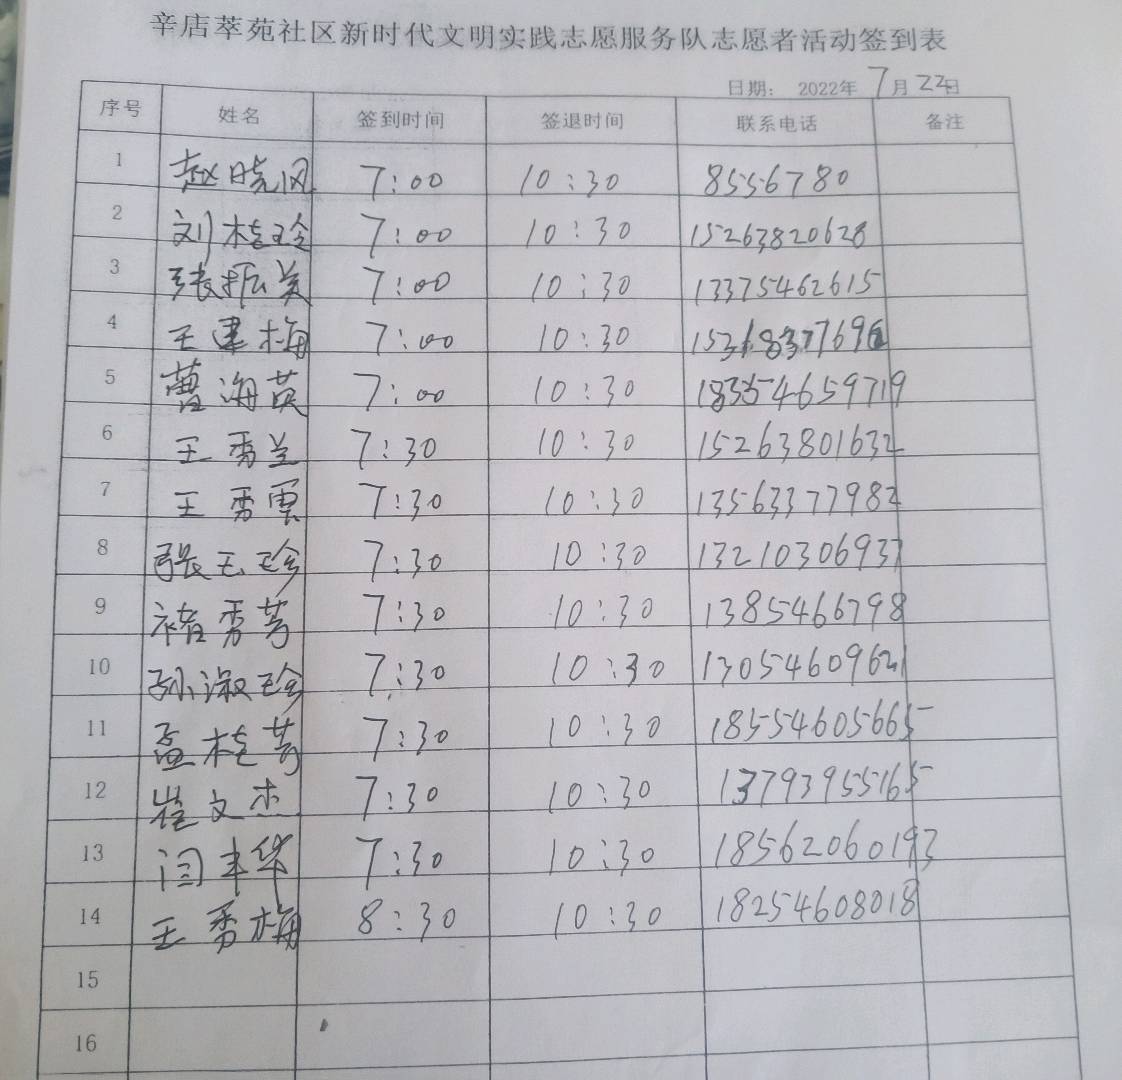 辛店萃苑社区新时代文明实践志愿服务队志愿者活动签到表
日期： 2022年 7月 22日
序号 姓名 签到时间 签退时间 联系电话 备注
1 赵晓风 7:00 10:30 8556780
2 刘桂玲 7:00 10:30 15263820628
3 张振美 7:00 10:30 13375462615
4 王建梅 7:00 10:30
5 曹海英 7:00 10:30 18354659719
6 王秀兰 7:30 10:30 15263801632
7 王秀 7:30 10:30 13563377982
8 张玉珍 7:30 10:30 13210306937
9 褚秀芳 7:30 10:30 1385466798
10 孙淑珍 7:30 10:30
11 孟桂芳 7:30 10:30 18554605665
12 崔文杰 7:30 10:30 13793955165
13 闫丰华 7:30 10:30 18562060193
14 王秀梅 8:30 10:30 18254608018
15
16